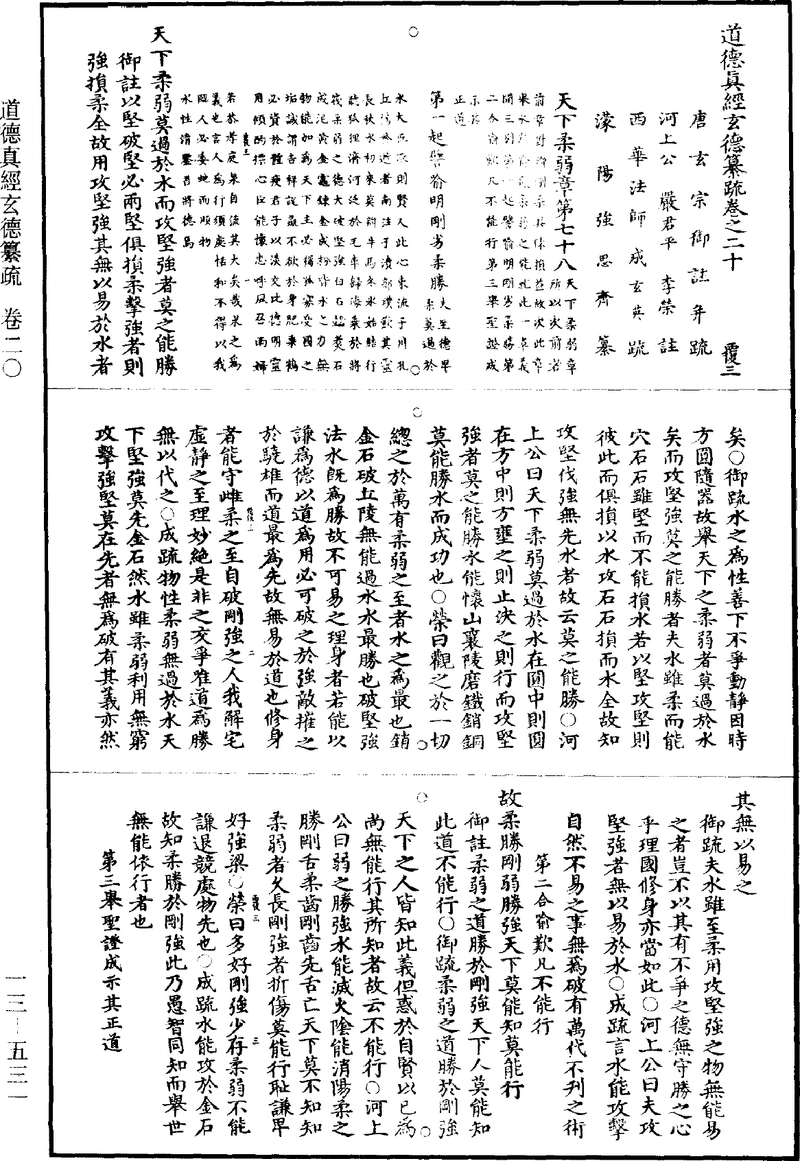 道德真經玄德纂疏卷之二十 覆三
唐玄宗御註并疏
河上公 嚴君平 李榮註
西華法師成玄英疏
濛陽強思齊纂
天下柔弱章第七十八
第一起譬喻明剛劣柔勝
天下柔弱莫過於水而攻堅強者莫之能勝
御註以堅破堅必兩堅俱損柔擊強者則
強損柔全故用攻堅強其無以易於水者
矣○御疏水之為性善下不爭動靜因時
方圓隨器故舉天下之柔弱者莫過於水
矣而攻堅強莫之能勝者夫水雖柔而能
穴石石雖堅而不能損水若以堅攻堅則
彼此而俱損以水攻石石損而水全故知
攻堅伐強無先水者故云莫之能勝○河
上公曰天下柔弱莫過於水在圓中則圓
在方中則方壅之則止決之則行而攻堅
強者莫之能勝水能懷山襄陵磨鐵銷銅
莫能勝水而成功也○榮曰觀之於一切
總之於萬有柔弱之至者水之為最也銷
金石破丘陵無能過水水最勝也破堅強
法水既為勝故不可易之理身者若能以
謙為德以道為用必可破之於強敵摧之
於驍雄而道最為先故無易於道也修身
者能守雌柔之至自破剛強之人我解宅
虛靜之至理妙絕是非之交爭唯道為勝
無以代之○成疏物性柔弱無過於水天
下堅強莫先金石然水雖柔弱利用無窮
攻擊強堅莫在先者無為破有其義亦然
其無以易之
御疏夫水雖至柔用攻堅強之物無能易
之者豈不以其有不爭之德無守勝之心
乎理國修身亦當如此○河上公曰夫攻
堅強者無以易於水○成疏言水能攻擊
自然不易之事無為破有萬代不刋之術
第二合喻歎凡不能行
故柔勝剛弱勝強天下莫能知莫能行
御註柔弱之道勝於剛強天下人莫能知
此道不能行○御疏柔弱之道勝於剛強
天下之人皆知此義但惑於自賢以已為
尚無能行其所知者故云不能行○河上
公曰弱之勝強水能滅火陰能消陽柔之
勝剛舌柔齒剛齒先舌亡天下莫不知知
柔弱者久長剛強者折傷莫能行耻謙卑
好強梁○榮曰多好剛強少存柔弱不能
謙退競處物先也○成疏水能攻於金石
故知柔勝於剛強此乃愚智同知而舉世
無能依行者也
第三舉聖證成示其正道
道德真經玄德纂疏 卷二〇
一三—五三一